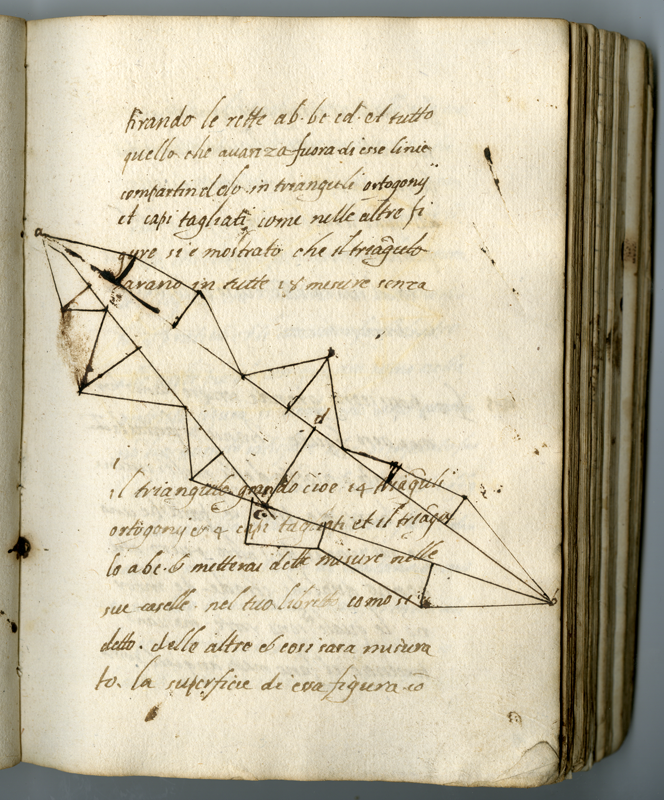 tirando le rette ab. bc cd. et tutto
quello che avanza fuora di esse linie
compartindolo in trianguli ortogonij
et capi tagliati come nelle altre fi
gure si è mostrato che il triãgulo
sarano in tutte 18 misure senza
a
d
il triangulo grando cioe 14 triãguli
c
ortogonij et 4 capi tagliati et il triãgo
lo abc. et metterai delle misure nelle
b
sue caselle. nel tuo libretto como si è
detto. delle altre et cosi sara misura
to. la superficie di essa figura cõ